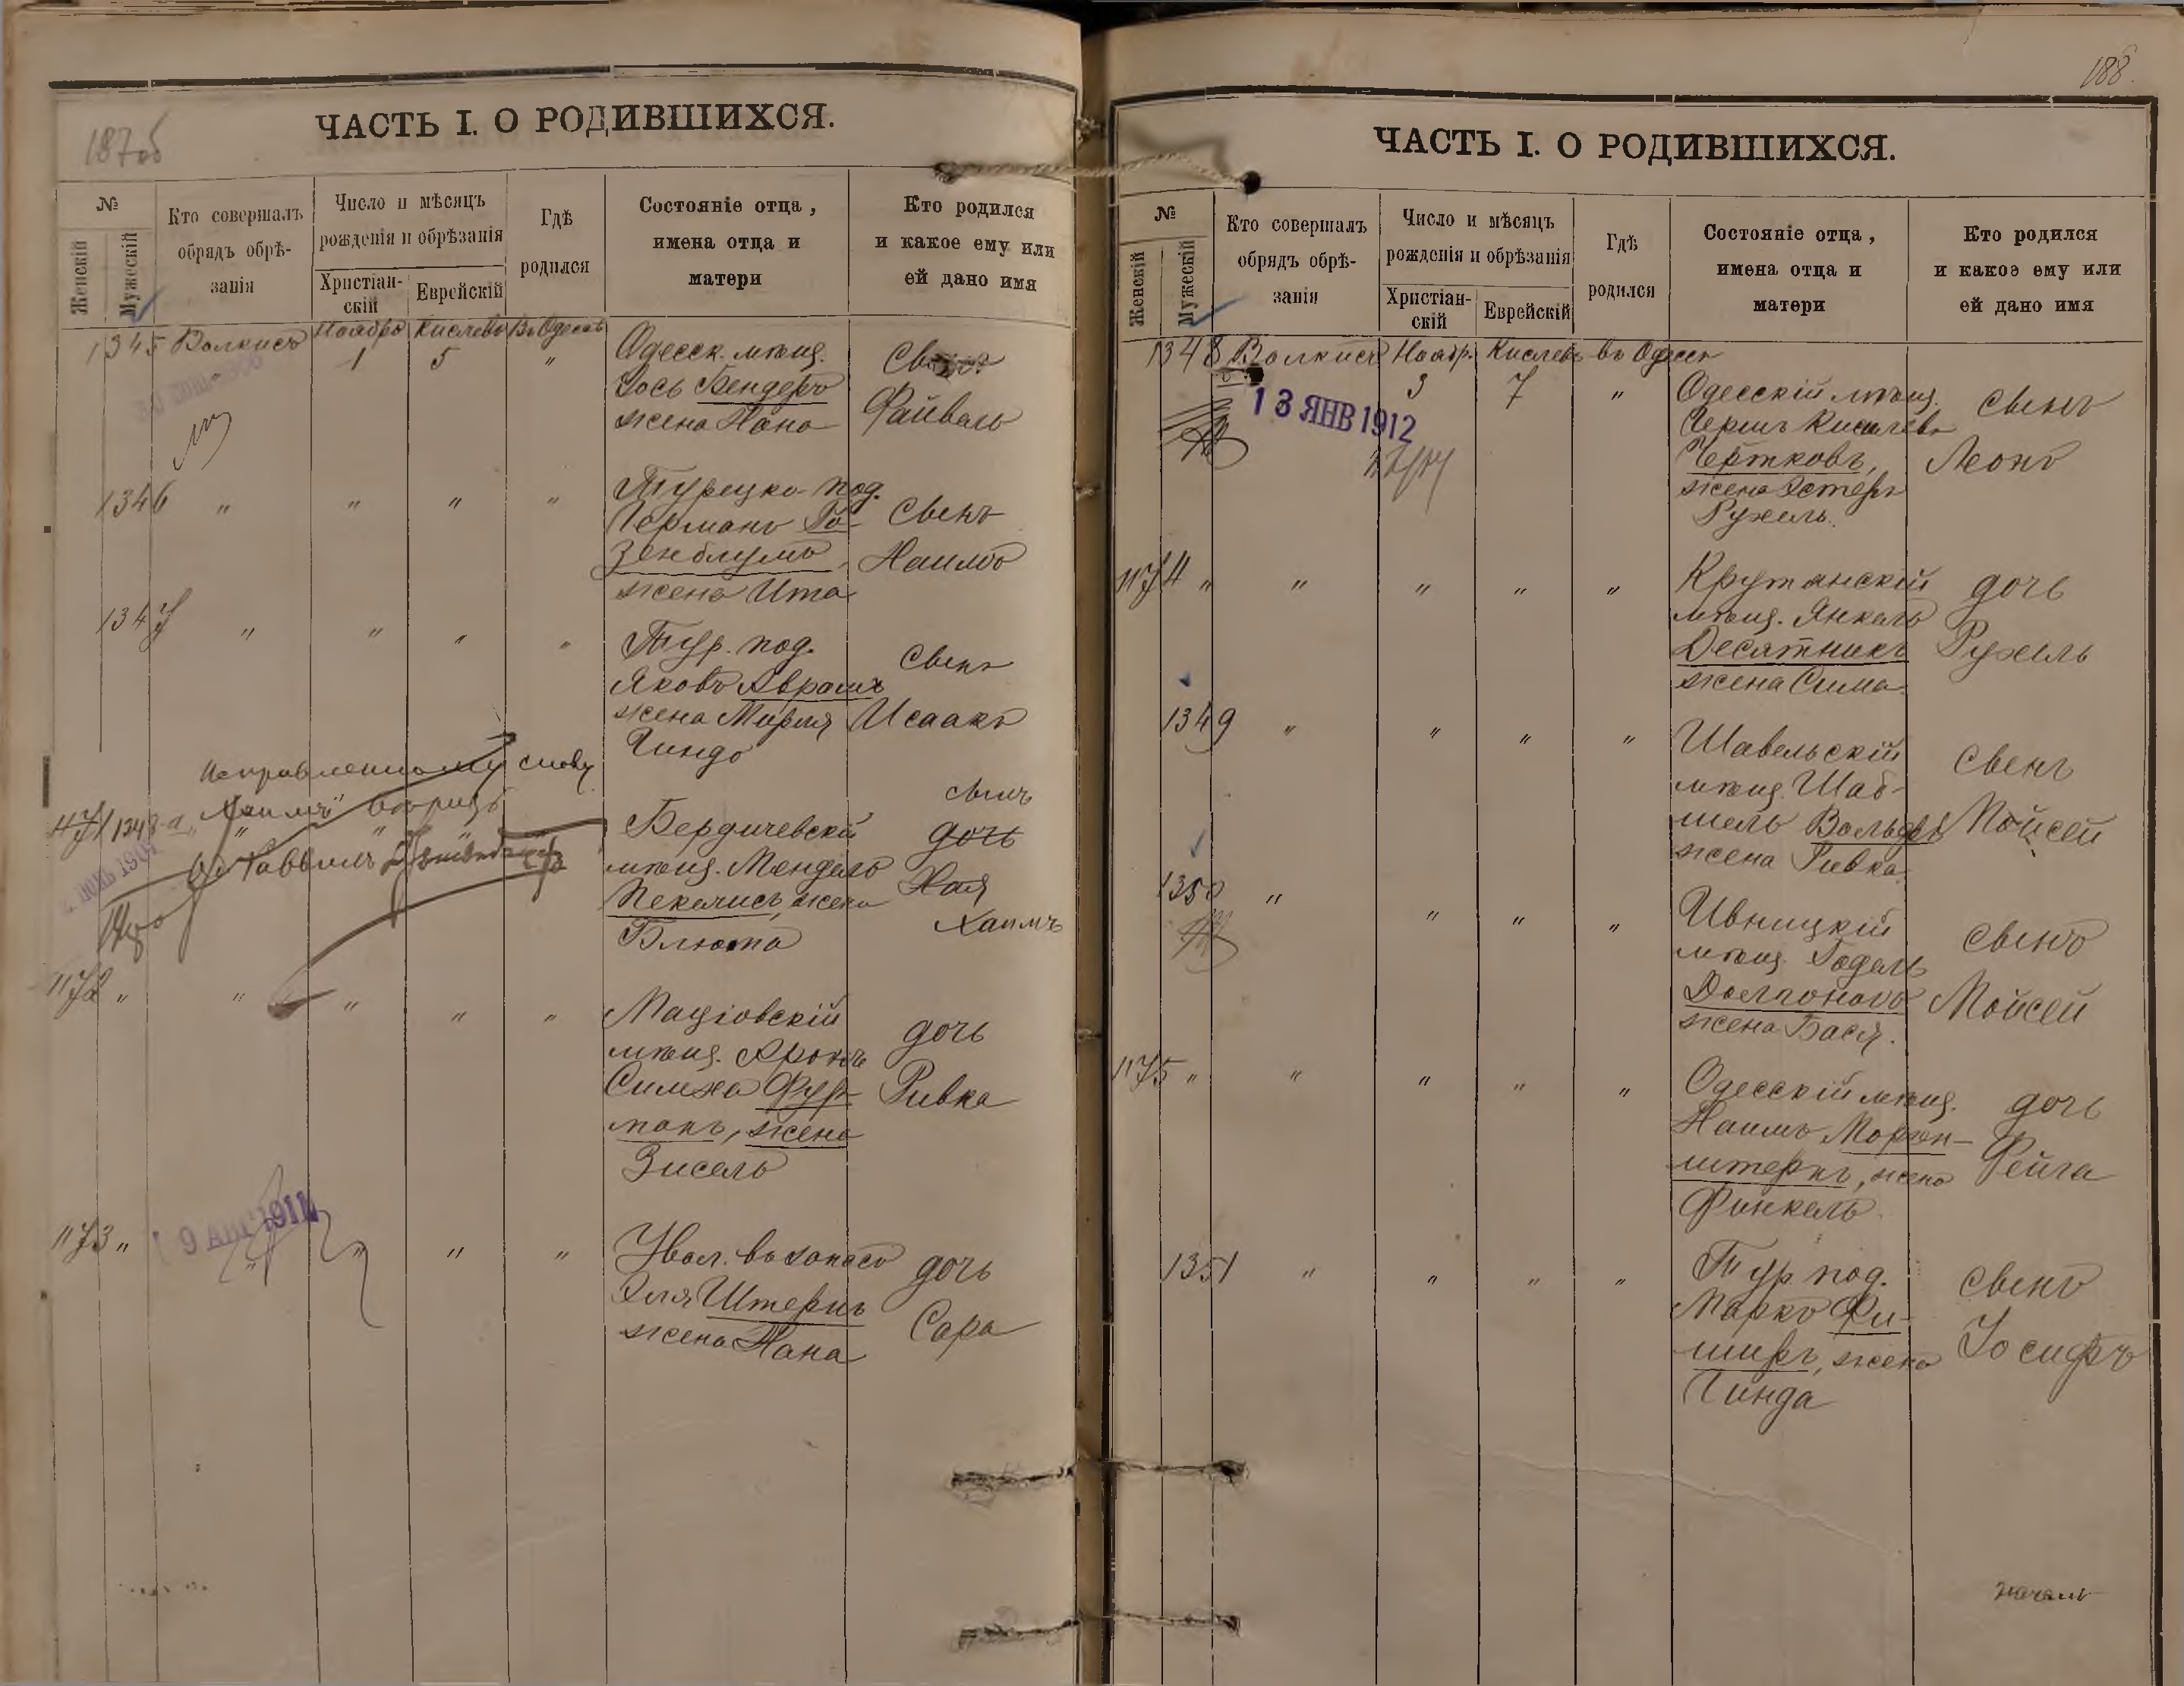 187об
ЧАСТЬ I. О РОДИВШИХСЯ.
№
Женскій
Мужескій
Кто совершалъ
обрядъ обрѣ-
занія
Число и мѣсяцъ
рожденія и обрѣзанія
Христіан-
скій
Еврейскій
Гдѣ
родился
Состояніе отца,
имена отца и
матери
Кто родился
и какое ему или
ей дано имя
1345 Ноября Кислевъ Въ Одессѣ
1 5 "
Одесск. мѣщ.
Іось Бендеръ
жена Хана
Файвель
1346 " " " "
Турецко-под.
Германъ Ро-
зенблумъ,
жена Ита
сынъ
Хаимъ
1347 " " " "
Тур. под.
Яковъ Аврамъ
жена Мирля
Гинда
сынъ
Исаакъ
Исправленному слову
"Хаимъ" вѣрить
Раввинъ
1171
Бердичевскій
мѣщ. Мендель
Пекелисъ, жена
Блюма
сынъ
дочь
Хая
Хаимъ
1172 " " " " "
Маціовскій
мѣщ. Аронъ
Симха Фур-
манъ, жена
Зисель
дочь
Ривка
1173 " " " " "
9 АВГ 1911
Увол. въ запасъ
Эля Штернъ
жена Хана
дочь
Сара
188.
ЧАСТЬ I. О РОДИВШИХСЯ.
№
Женскій
Мужескій
Кто совершалъ
обрядъ обрѣ-
занія
Число и мѣсяцъ
рожденія и обрѣзанія
Христіан-
скій
Еврейскій
Гдѣ
родился
Состояніе отца,
имена отца и
матери
Кто родился
и какое ему или
ей дано имя
1348 Ноябр. Кислевъ въ Одессѣ
3 7 "
13 ЯНВ 1912
Одесскій мѣщ.
Чертковъ,
жена Эстеръ
Рухель.
сынъ
Леонъ
1174 " " " " "
мѣщ. Янкель
Десятникъ
жена Сима.
дочь
Рухель
1349 " " " "
Шавельскій
мѣщ. Шаб-
шель Вольфъ
жена Ривка.
сынъ
Мойсей
1350 " " " "
Ивницкій
мѣщ. Годель
жена Бася.
сынъ
Мойсей
1175 " " " " "
Одесскій мѣщ.
Хаимъ Морген-
штернъ, жена
Финкель.
дочь
Фейга
1351 " " " "
Тур. под.
Марко Фи-
шеръ, жена
Гинда
сынъ
Іосифъ